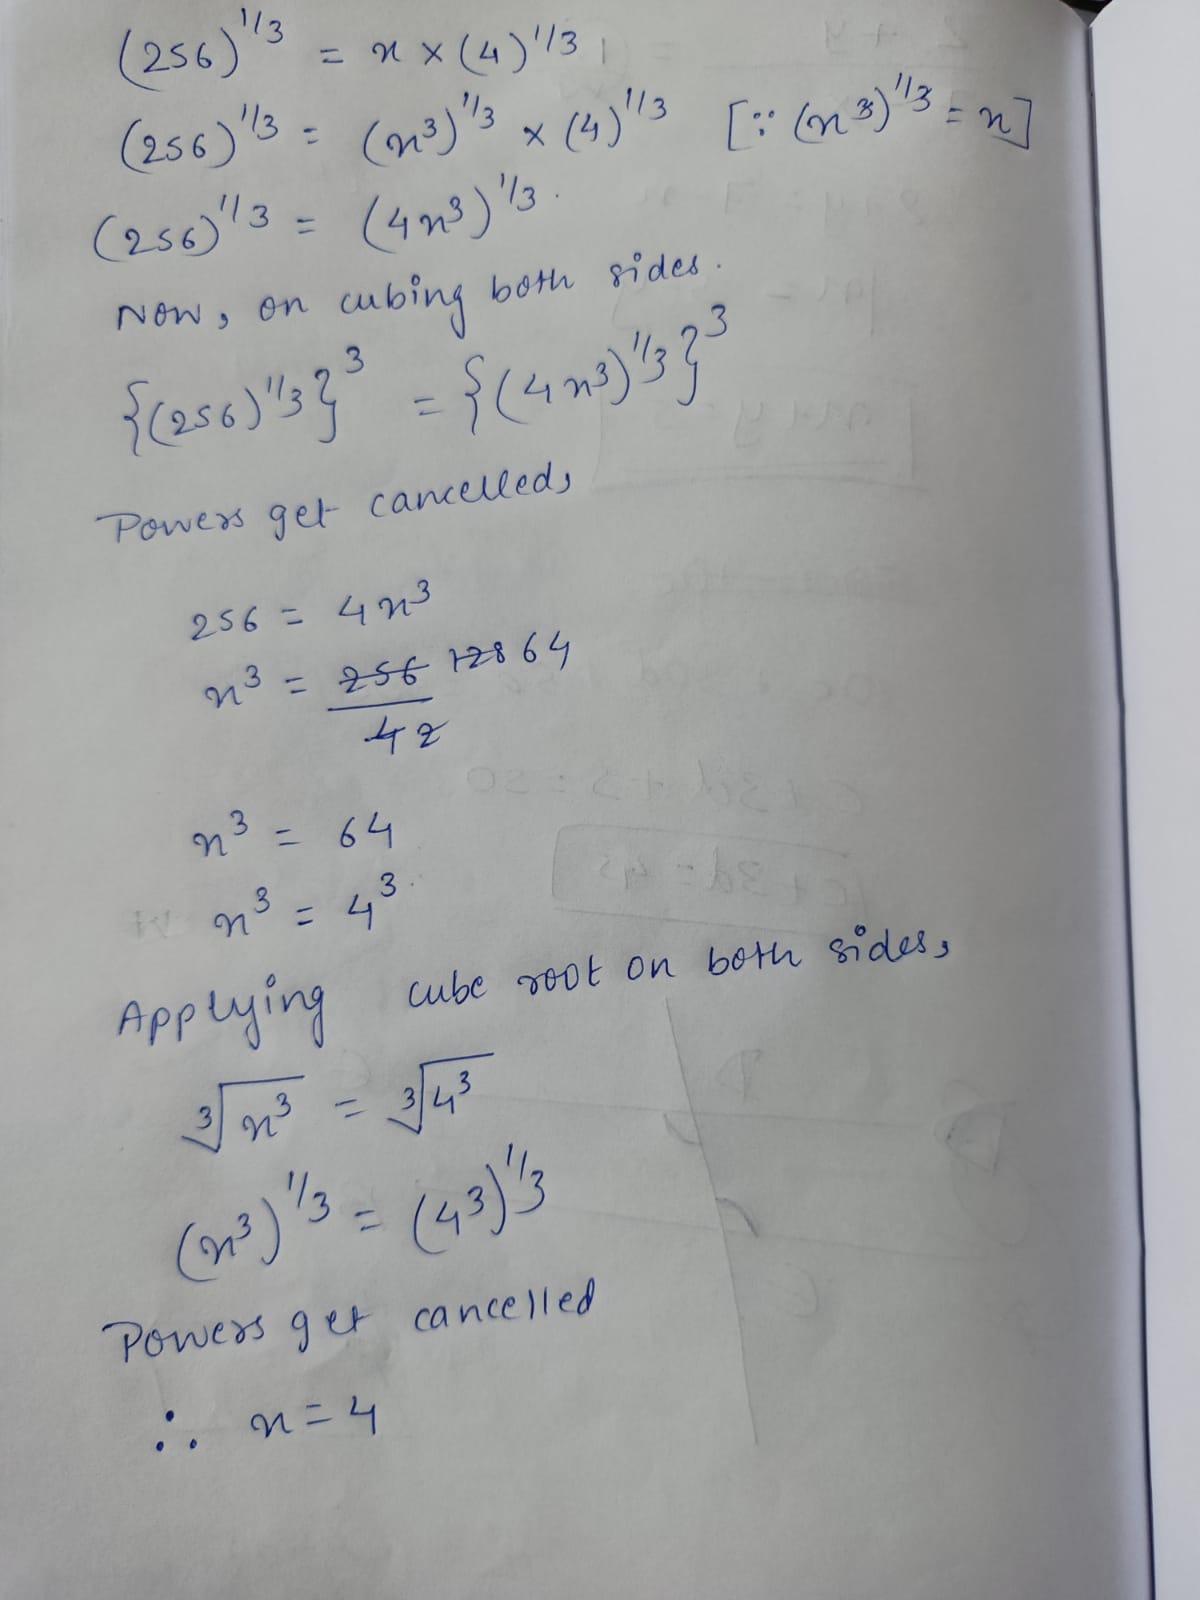 (256)^1/3 = x × (4)^1/3
(256)^1/3 = (x^3)^1/3 × (4)^1/3 [∵ (x^3)^1/3 = x]
(256)^1/3 = (4x^3)^1/3.
Now, on cubing both sides.
{(256)^1/3}^3 = {(4x^3)^1/3}^3
Powers get cancelled,
256 = 4x^3
x^3 = 256 128 64
4 2
x^3 = 64
x^3 = 4^3
Applying cube root on both sides,
∛x^3 = ∛4^3
(x^3)^1/3 = (4^3)^1/3
Powers get cancelled
∴ x = 4